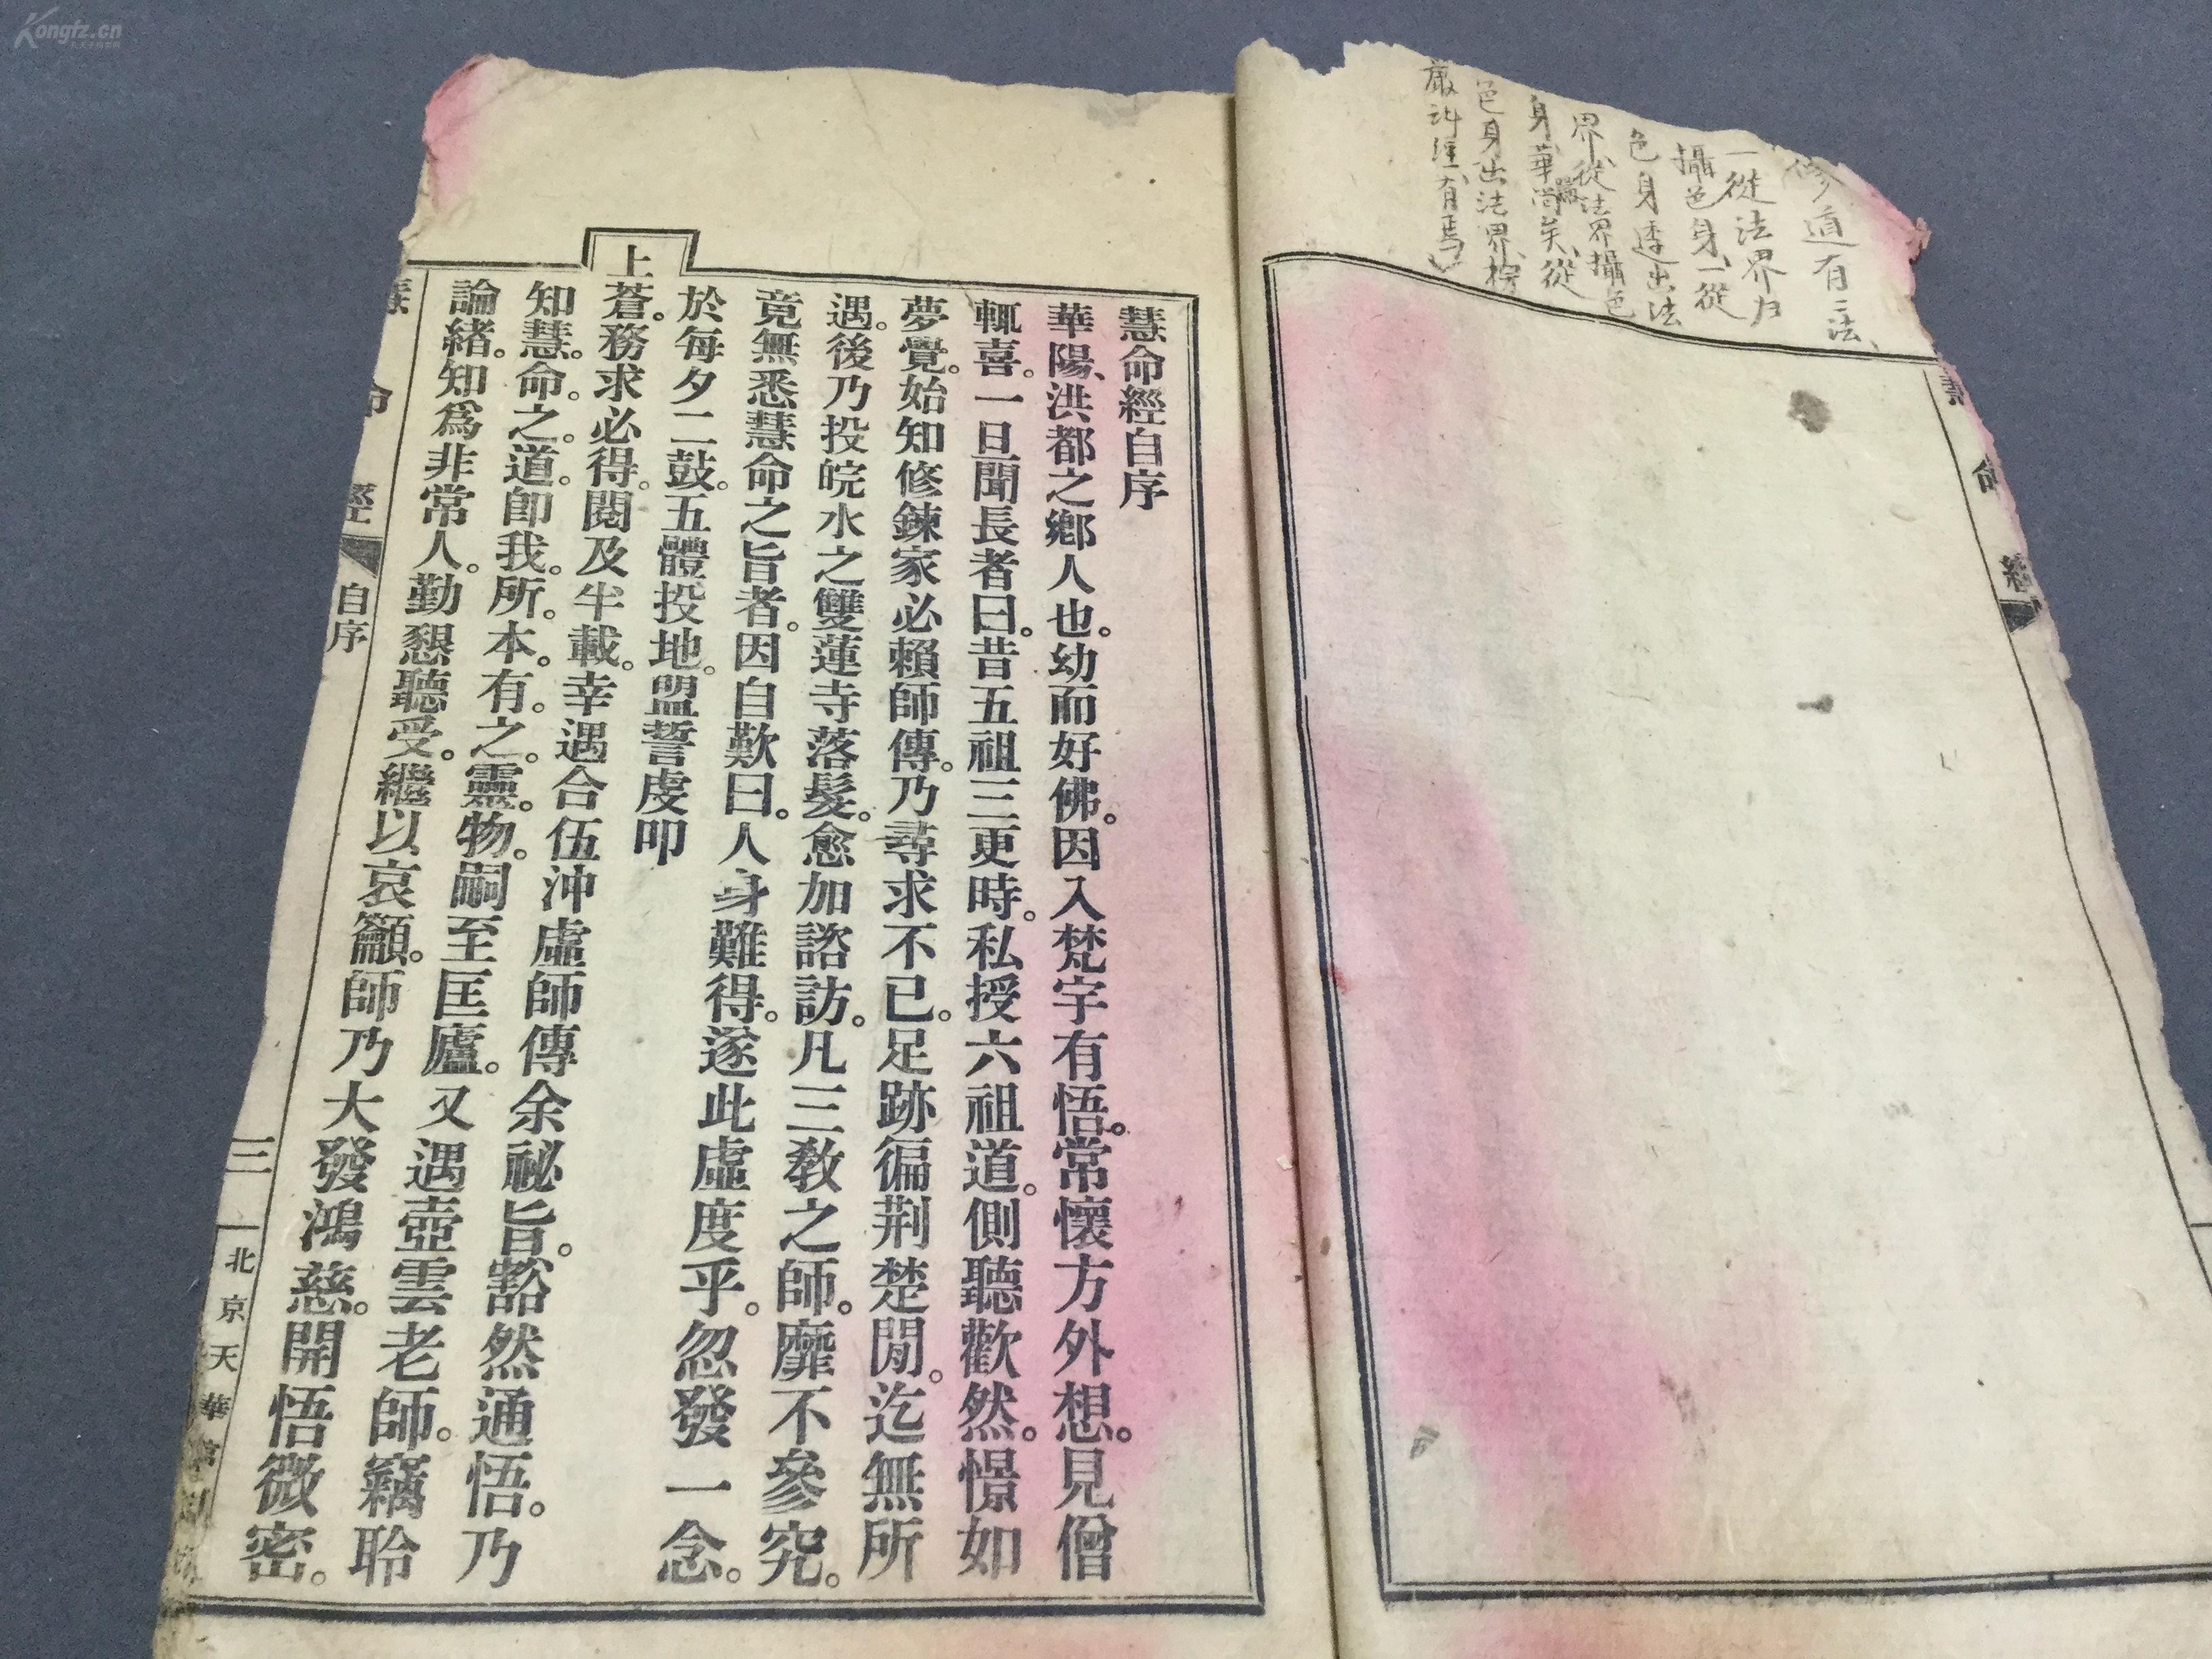 Kongfz.cn
修道有二法、
一從法界归
攝色身、一從
色身透出法
界、從法界攝色
身、華嚴尚矣、從
色身出法界、楞
嚴諸經有焉、
慧命經
慧命經自序
華陽、洪都之鄉人也。幼而好佛。因入梵宇有悟。常懷方外想。見僧
輒喜。一旦聞長者曰。昔五祖三更時。私授六祖道。側聽歡然。憬如
夢覺。始知修鍊家必賴師傳。乃尋求不已。足跡徧荆楚閒。迄無所
遇。後乃投皖水之雙蓮寺落髮。愈加諮訪。凡三敎之師。靡不參究。
竟無悉慧命之旨者。因自歎曰。人身難得。遂此虛度乎。忽發一念。
於每夕二鼓。五體投地。盟誓虔叩
上蒼。務求必得。閱及半載。幸遇合伍沖虛師傳余祕旨。豁然通悟。乃
知慧。命。之。道。卽我。所。本。有。之。靈。物。嗣至匡廬。又遇壺雲老師。竊聆
論緒。知爲非常人。勤懇聽受。繼以哀籲。師乃大發鴻慈。開悟微密。
慧命經
自序
三
北京天華館